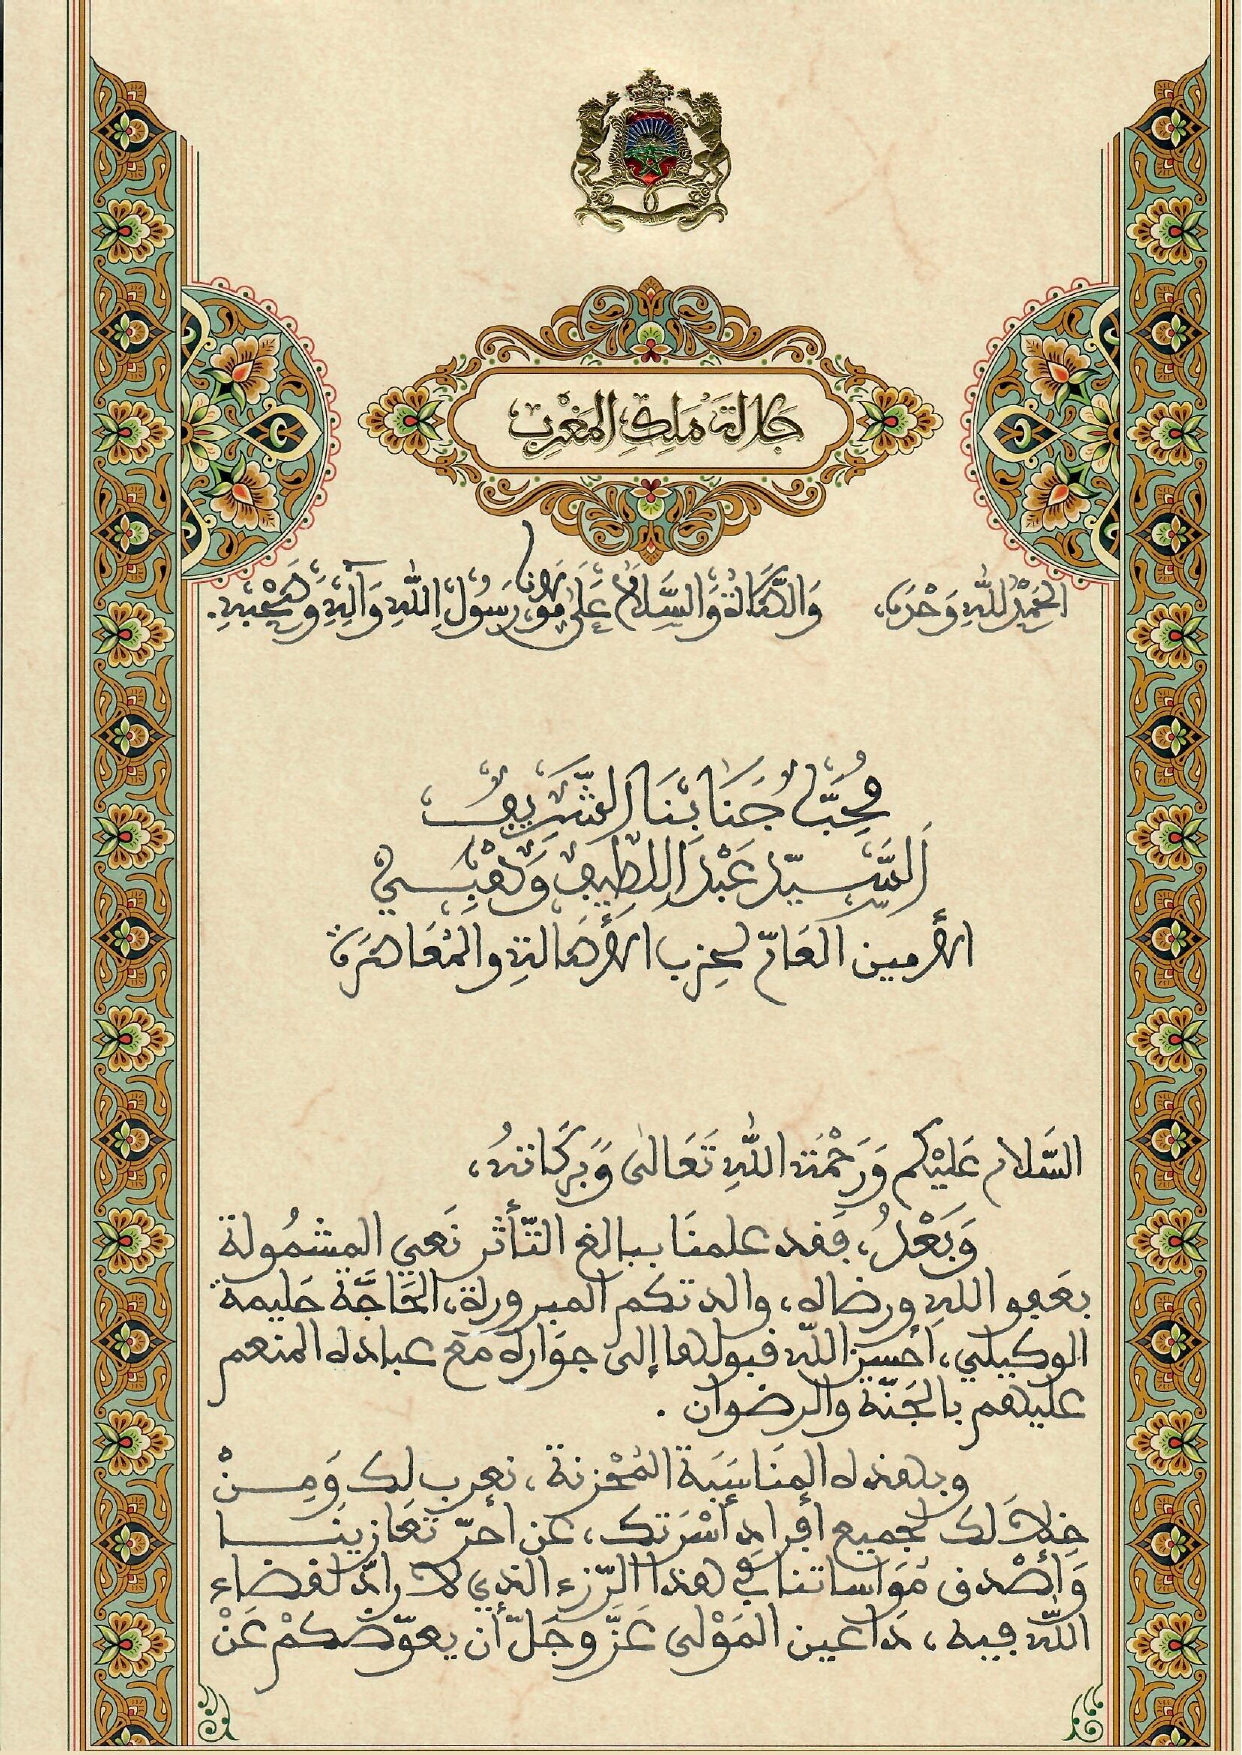 جلالة ملك المغرب
الحمد لله وحده، والصلاة والسلام على مولانا رسول الله وآله وصحبه.
محب جنابنا الشريف
السيد عبد اللطيف وهبي
الأمين العام لحزب الأصالة والمعاصرة
السلام عليكم ورحمة الله تعالى وبركاته،
وبعد، فقد علمنا ببالغ التأثر نعي المشمولة
بعفو الله ورضاه، والدتكم المبرورة، الحاجة حليمة
الوكيلي، أحسن الله قبولها إلى جواره مع عباده المنعم
عليهم بالجنة والرضوان.
وبهذه المناسبة المحزنة، نعرب لك ومن
خلالك لجميع أفراد أسرتك، عن أحر تعازينا
وأصدق مواساتنا في هذا الرزء الذي لا راد لقضاء
الله فيه، داعين المولى عز وجل أن يعوضكم عن